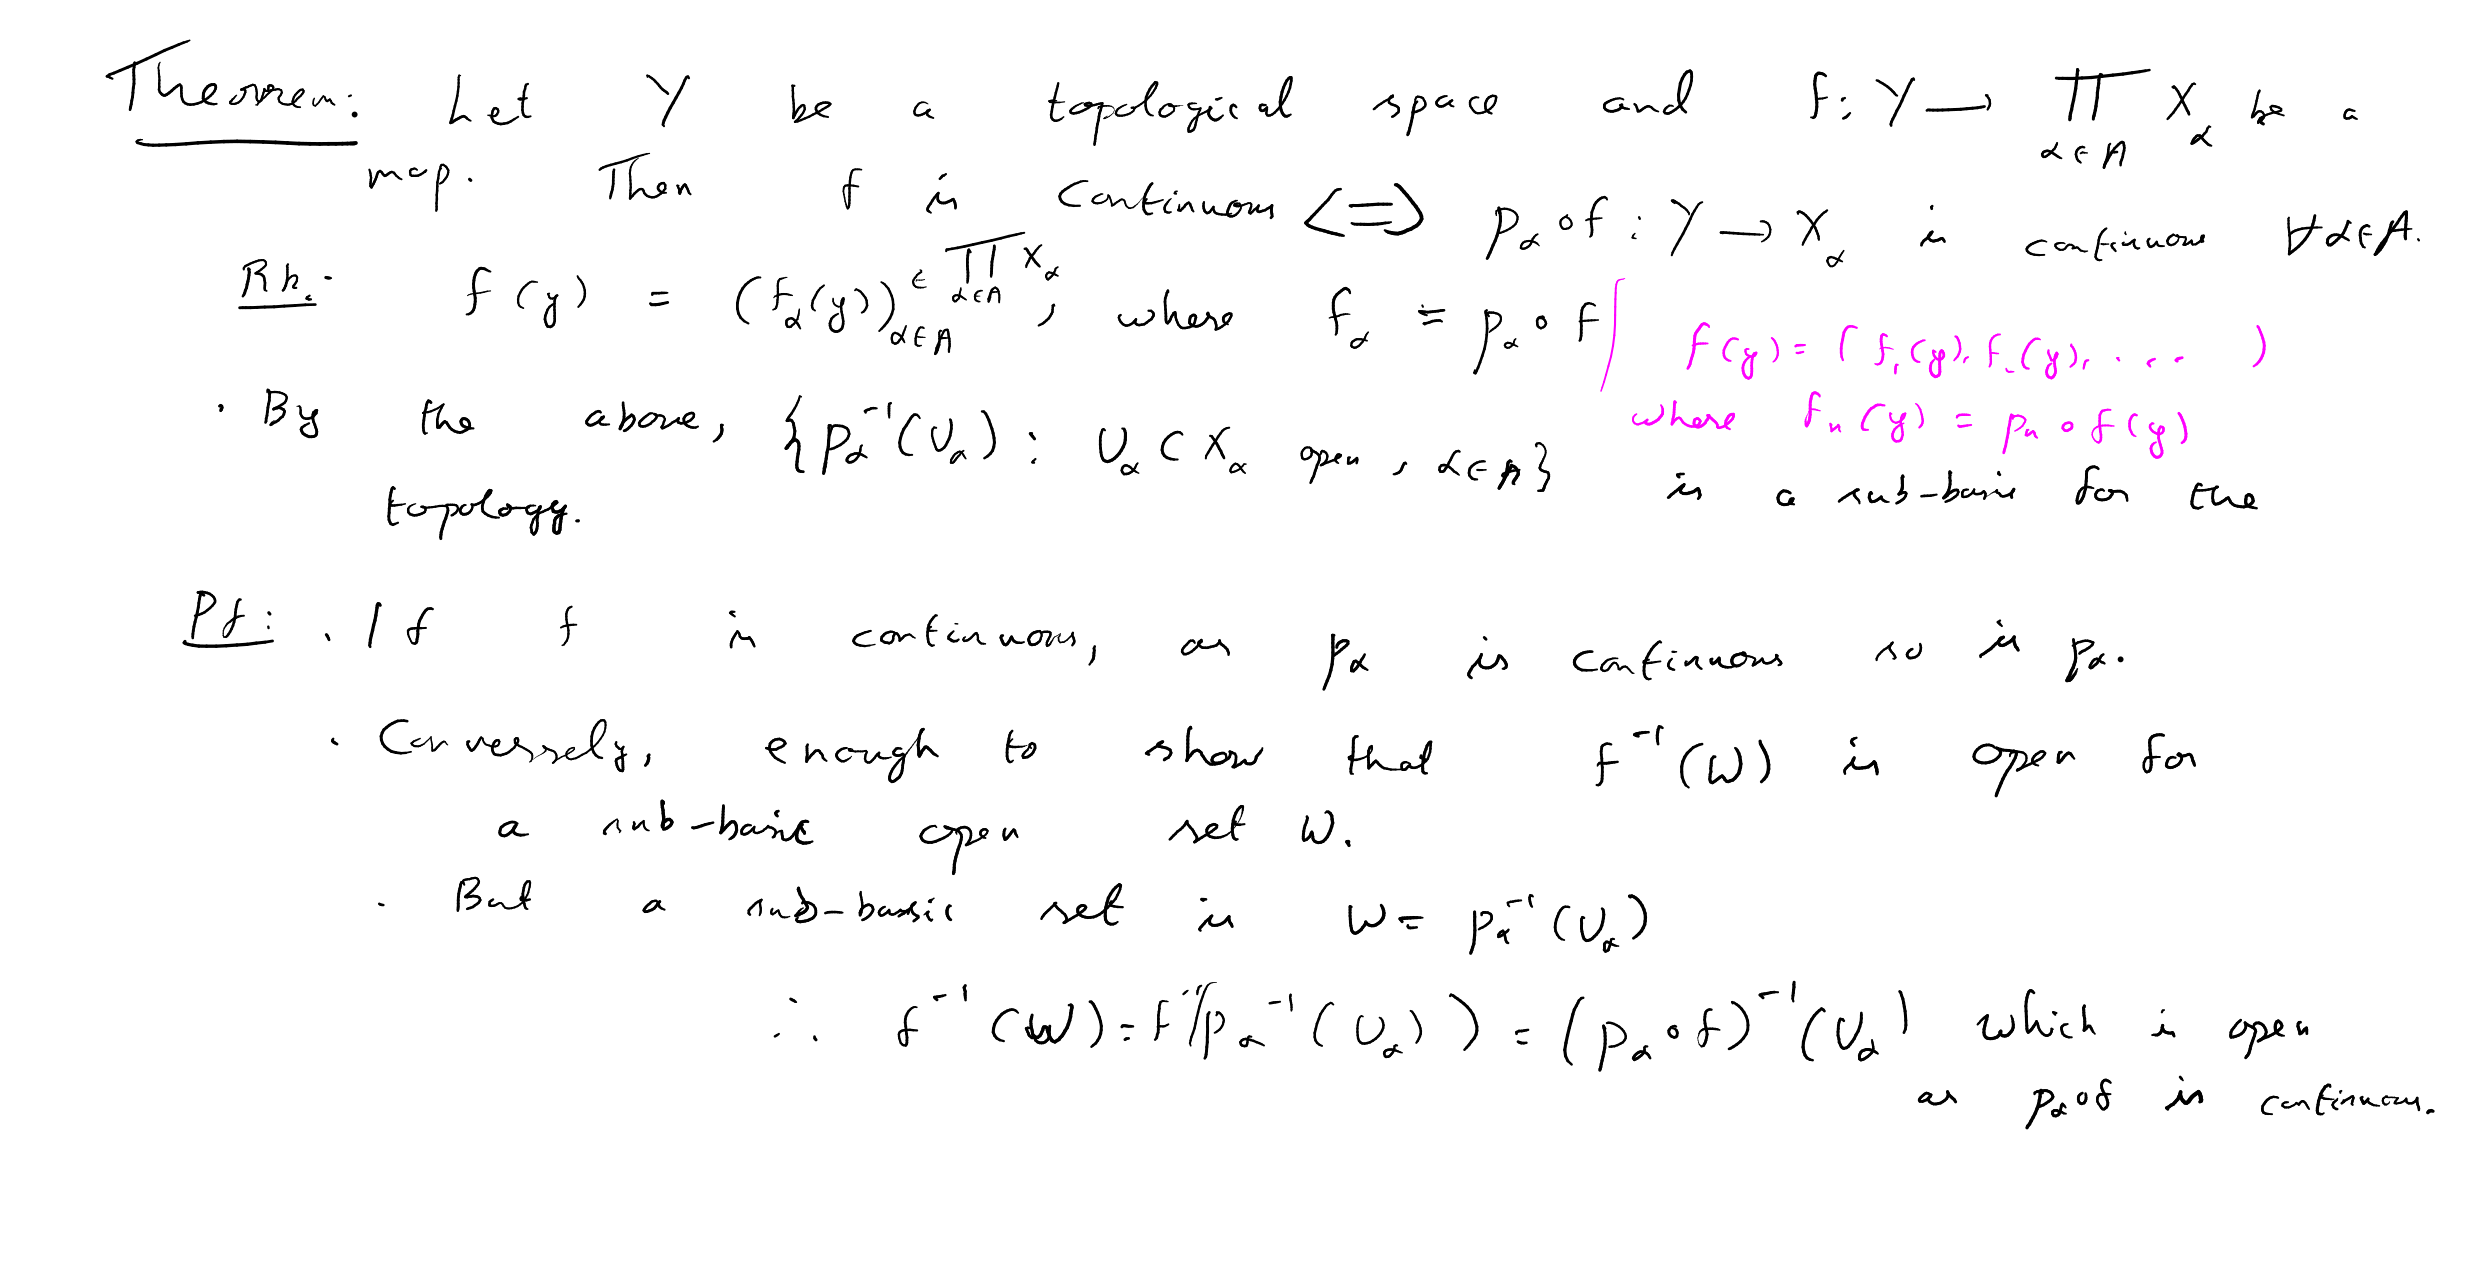 Theorem: Let Y be a topological space and f: Y → ∏_{α∈A} X_α be a
map. Then f is continuous <=> p_α∘f : Y → X_α is continuous ∀α∈A.
Rk: f(y) = (f_α(y))_{α∈A} ∈ ∏_{α∈A} X_α, where f_α = p_α∘f
f(y) = (f_1(y), f_2(y), ....)
where f_n(y) = p_n∘f(y)
· By the above, {p_α^{-1}(U_α) : U_α ⊂ X_α open, α∈A} is a sub-basis for the
topology.
Pf: · If f is continuous, as p_α is continuous so is p_α.
· Conversely, enough to show that f^{-1}(W) is open for
a sub-basic open set W.
· But a sub-basic set is W = p_α^{-1}(U_α)
∴ f^{-1}(W) = f^{-1}(p_α^{-1}(U_α)) = (p_α∘f)^{-1}(U_α) which is open
as p_α∘f is continuous.